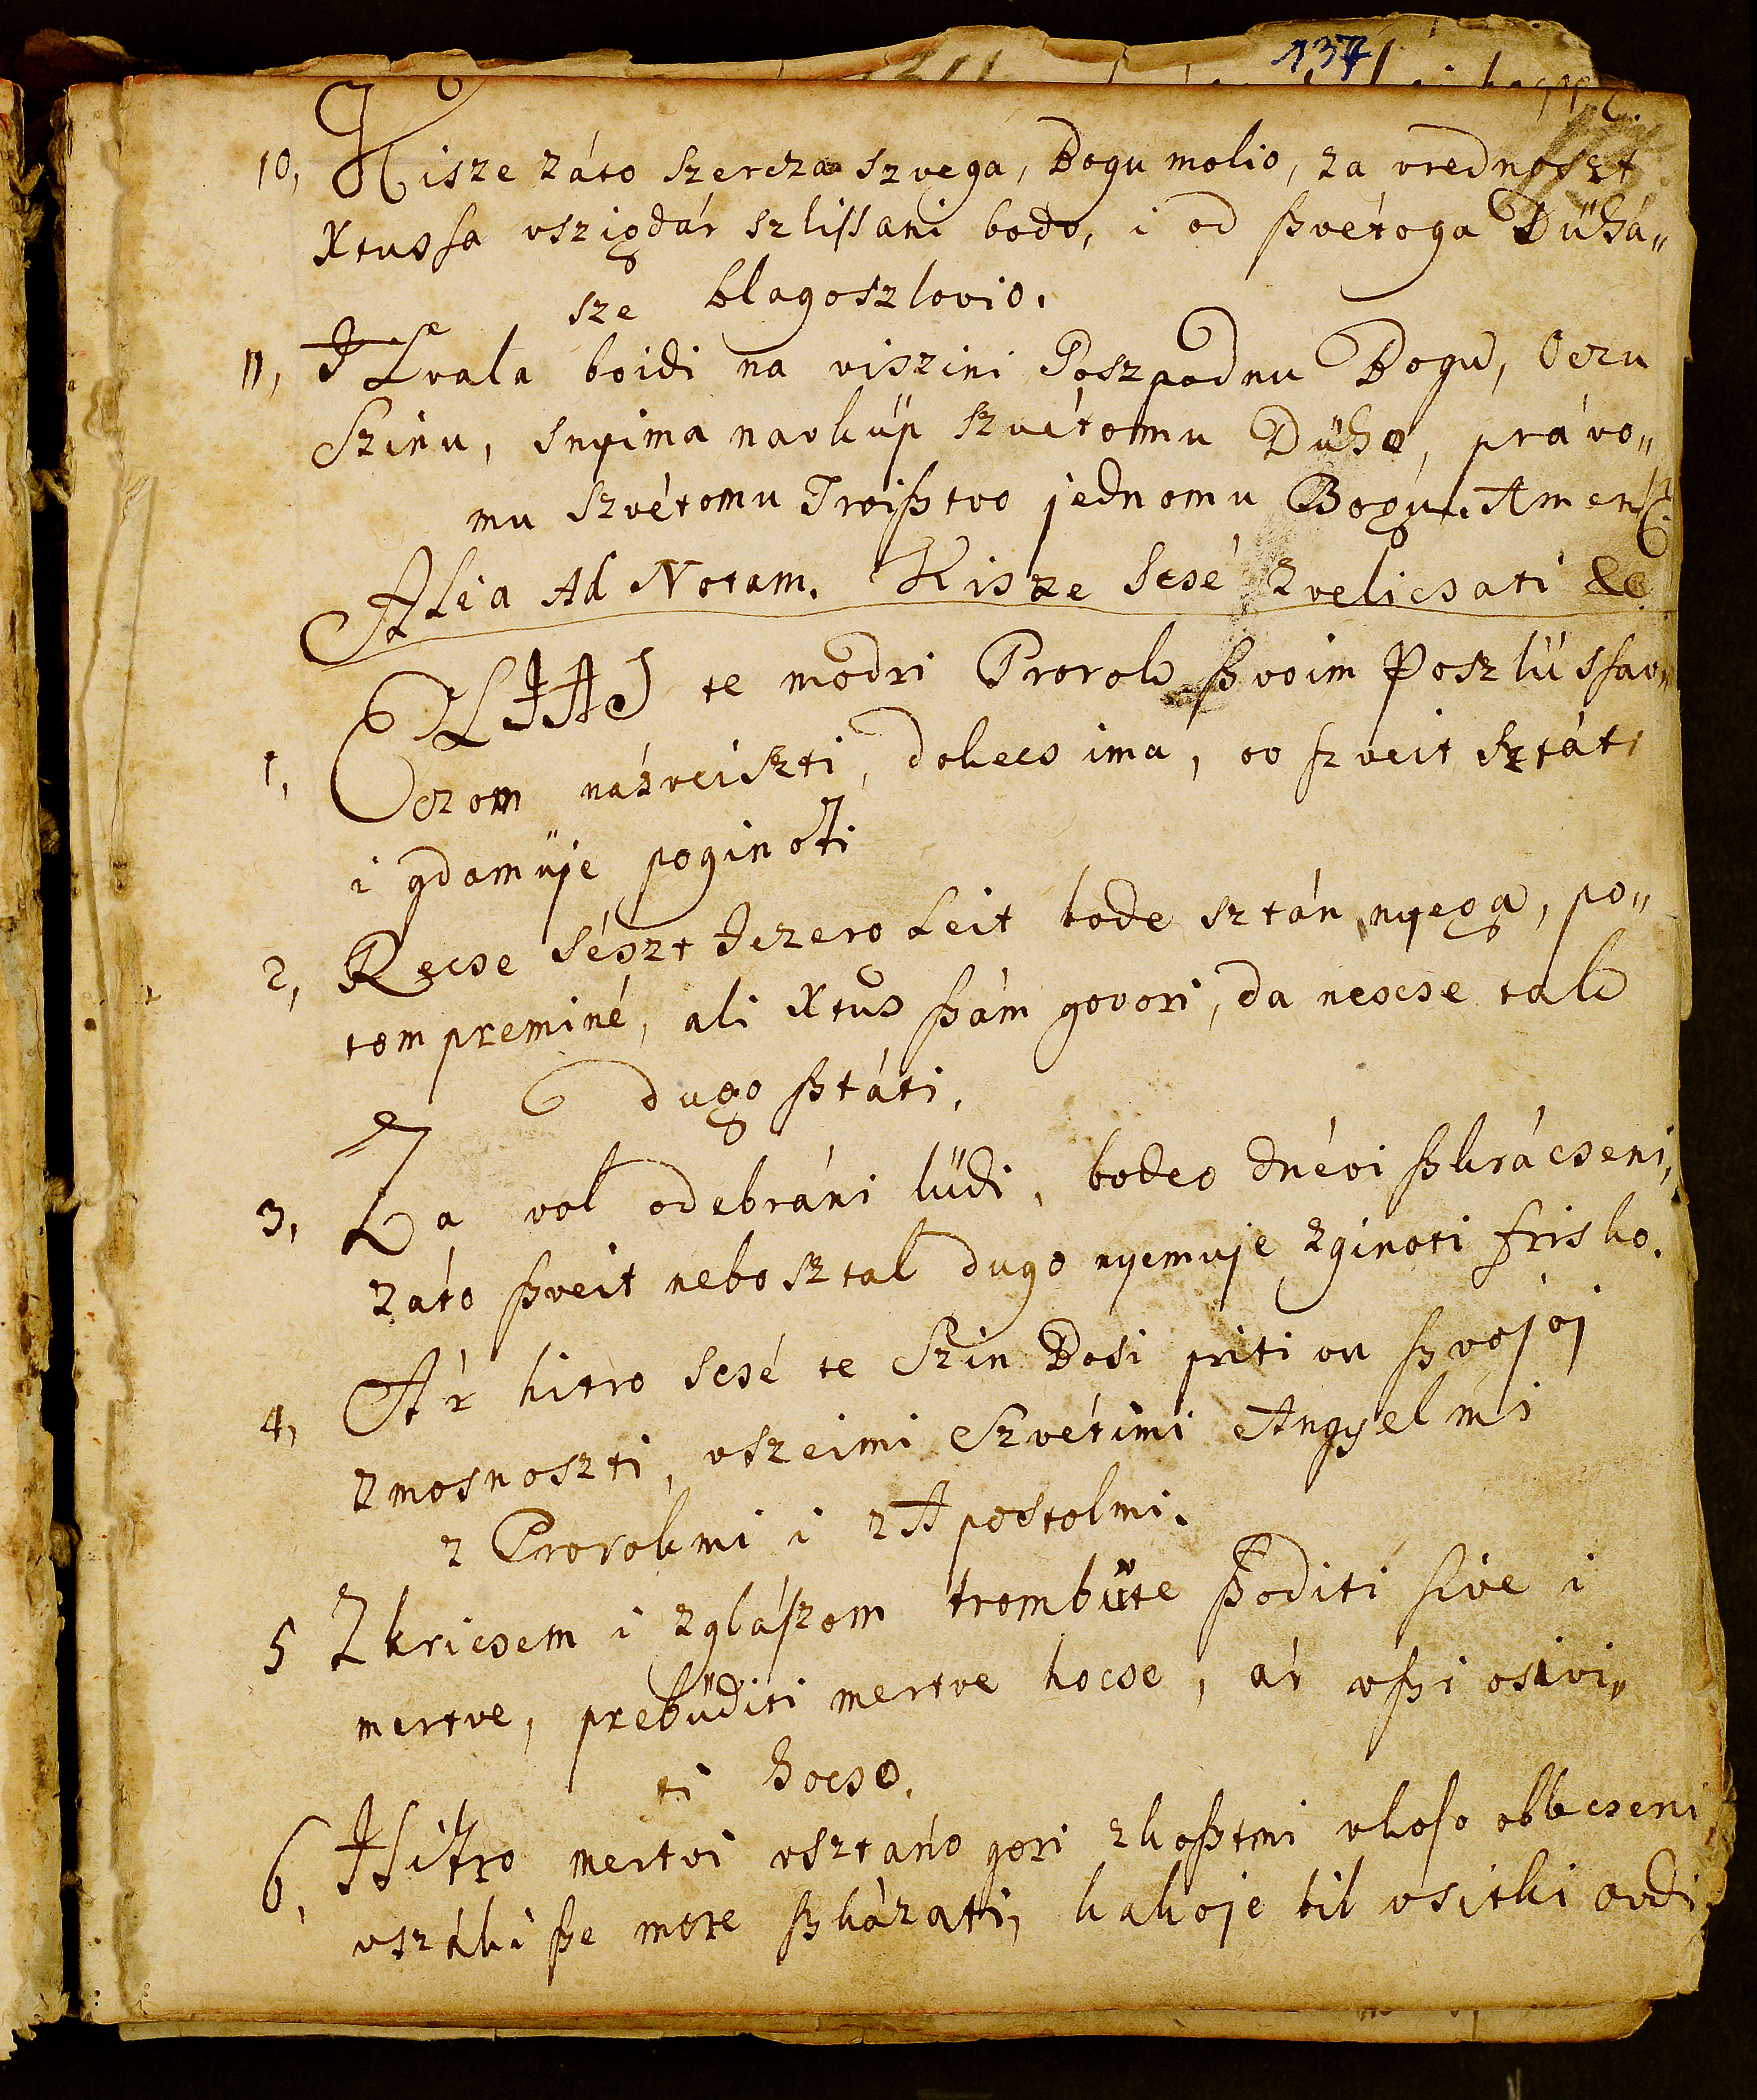 137
10, Kisze záto szercza szvega, Bogu molio, za vrednoszt
Xtussa vszigdár szlissani bodo, i od ßvétoga Dühá„
sze blagoszlovio.
11, Hvala boidi na viszini Goszpodnu Bogu, Oczu
Szinu, snyima navküp szvétomu Dühe, právo„
mu szvétomu Troißtvo jednomu Bogu. Amen
Alia Ad Notam. Kisze scsé zvelicsati &c
1, ELIAS te modri Prorok ßvoim Poszlüssav„
czom náveiszti, dokecs ima, ov szveit sztáti
i gdamüje poginoti
2, Recse sészt Jezero Leit bode sztán nyega, po„
tom preminé, ali Xtus ßám govori, da necse tak
dugo ßtáti.
3, Za vol odebráni lüdi, bodeo dnévi ßkrácseni,
záto ßveit nebo sztal dugo nyemuje zginoti frisko.
4, Ár hitro scsé te Szin Bosi priti vu ßvojoj
zmosnoszti, vszeimi Szvétimi Angyelmi
z Prorokmi i z Apostolmi.
5 Zkricsem i zglászom trombüte ßoditi sive i
mertve, prebüditi mertve hocse, ár vßi osivi„
ti hocso.
6, Hitro mertvi vsztáno gori zkoßtmi vkoso obbecseni
vszáki ße more ßkázati, kakoje bil vsitki ovdi